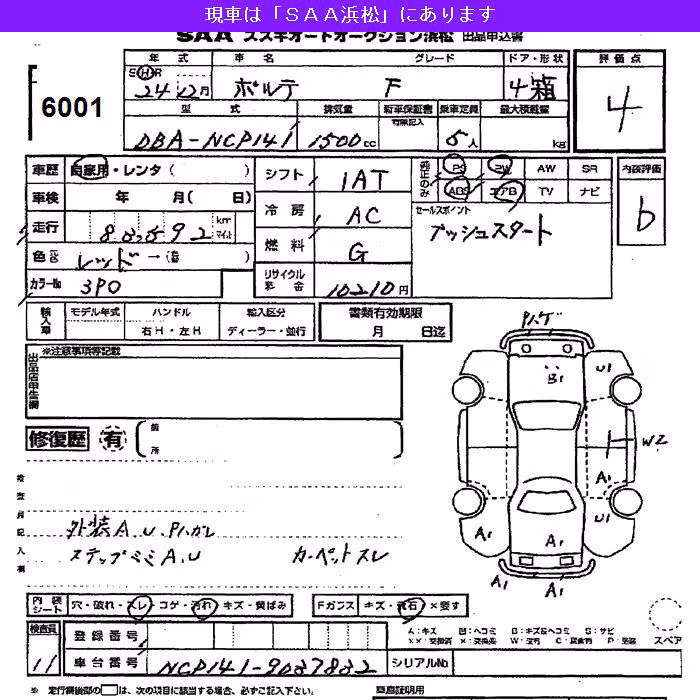 現車は「ＳＡＡ浜松」にあります
SAA スズキオートオークション浜松 出品申込書
6001
年 式 車 名 グレード ドア・形状 評価点
SHR
24年12月 ポルテ F 4箱 4
型 式 排気量 新車保証書 乗車定員 最大積載量
有無記入
DBA-NCP141 1500cc 5人 kg
車歴 自家用・レンタ( )
車検 年 月( 日)
走行 88,592 km マイル
色 レッド →(色替 )
カラーNo 3P0
シフト 1AT
冷房 AC
燃料 G
リサイクル料金 10210円
純正のみ PS PW AW SR
ABS エアB TV ナビ
セールスポイント
プッシュスタート
内装評価
b
輸入車 モデル年式 ハンドル 輸入区分
右H・左H ディーラー・並行
書類有効期限
月 日迄
出品店申告欄 ※注意事項等記載
修復歴 有 箇所
検査員記入欄
外装A.U.Pハガレ
ステップミミA.U カーペットスレ
Pハゲ
B1
U1
W2
A1
U1
A1
A1
A1
A1
内装シート 穴・破れ・スレ・コゲ・汚れ・キズ・黄ばみ
Fガラス キズ・飛石・×要す
検査員 11
登録番号
車台番号 NCP141-9037832
シリアルNo
A：キズ U：ヘコミ B：キズ&ヘコミ S：サビ
スペア
※ 走行欄後部の□は、次の項目に該当する場合、必ずご記入下さい。
車庫証明用